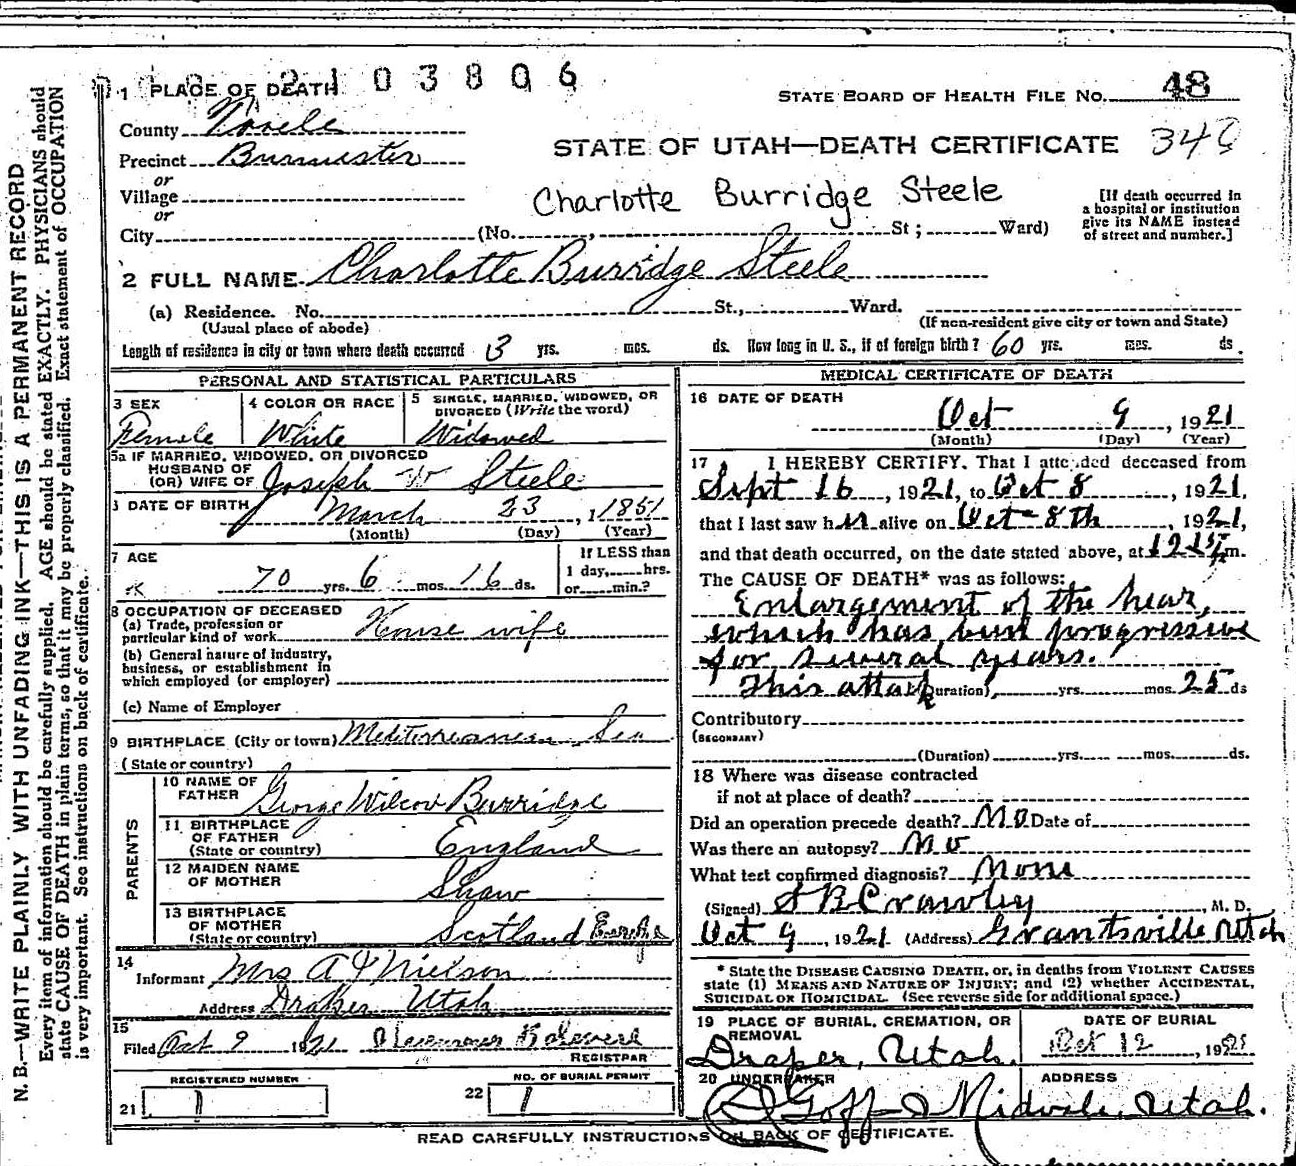 N. B.—WRITE PLAINLY WITH UNFADING INK—THIS IS A PERMANENT RECORD
Every item of information should be carefully supplied. AGE should be stated EXACTLY. PHYSICIANS should
state CAUSE OF DEATH in plain terms, so that it may be properly classified. Exact statement of OCCUPATION
is very important. See instructions on back of certificate.
2 1 0 3 8 0 6
1 PLACE OF DEATH
STATE BOARD OF HEALTH FILE NO. 48
County Tooele
STATE OF UTAH—DEATH CERTIFICATE 348
Precinct Burmester
or
Village
Charlotte Burridge Steele
[If death occurred in
a hospital or institution
give its NAME instead
of street and number.]
or
City (No. , St ; Ward)
2 FULL NAME Charlotte Burridge Steele
(a) Residence. No. St., Ward.
(Usual place of abode) (If non-resident give city or town and State)
Length of residence in city or town where death occurred 3 yrs. mos. ds. How long in U. S., if of foreign birth? 60 yrs. mos. ds
PERSONAL AND STATISTICAL PARTICULARS
3 SEX 4 COLOR OR RACE 5 SINGLE, MARRIED, WIDOWED, OR
DIVORCED (Write the word)
Female White Widowed
5a IF MARRIED, WIDOWED, OR DIVORCED
HUSBAND OF
(OR) WIFE OF Joseph W Steele
DATE OF BIRTH March 23, 1851
(Month) (Day) (Year)
7 AGE If LESS than
1 day, hrs.
70 yrs. 6 mos. 16 ds. or min.?
8 OCCUPATION OF DECEASED
(a) Trade, profession or
particular kind of work House wife
(b) General nature of industry,
business, or establishment in
which employed (or employer)
(c) Name of Employer
9 BIRTHPLACE (City or town) Mediterranean Sea
(State or country)
PARENTS
10 NAME OF
FATHER George Wilcox Burridge
11 BIRTHPLACE
OF FATHER
(State or country) England
12 MAIDEN NAME
OF MOTHER Shaw
13 BIRTHPLACE
OF MOTHER
(State or country) Scotland
14
Informant Mrs A Nielson
Address Draper Utah
15
Filed Oct 9 1921
REGISTRAR
REGISTERED NUMBER NO. OF BURIAL PERMIT
21 1 22 1
MEDICAL CERTIFICATE OF DEATH
16 DATE OF DEATH
Oct 9, 1921
(Month) (Day) (Year)
17 I HEREBY CERTIFY, That I attended deceased from
Sept 16, 1921, to Oct 8, 1921,
that I last saw her alive on Oct-8th, 1921,
and that death occurred, on the date stated above, at m.
The CAUSE OF DEATH* was as follows:
Enlargement of the hear,
which has bin progressive
for several years.
This attack (Duration) yrs. mos. 25 ds
Contributory
(SECONDARY)
(Duration) yrs. mos. ds.
18 Where was disease contracted
if not at place of death?
Did an operation precede death? No Date of
Was there an autopsy? No
What test confirmed diagnosis? None
(Signed) Crawley, M. D.
Oct 9, 1921 (Address) Grantsville Utah
* State the DISEASE CAUSING DEATH, or, in deaths from VIOLENT CAUSES
state (1) MEANS AND NATURE OF INJURY; and (2) whether ACCIDENTAL,
SUICIDAL OR HOMICIDAL. (See reverse side for additional space.)
19 PLACE OF BURIAL, CREMATION, OR
REMOVAL DATE OF BURIAL
Draper, Utah. Oct 12, 1921
20 UNDERTAKER ADDRESS
Goff Midvale, Utah.
READ CAREFULLY INSTRUCTIONS ON BACK OF CERTIFICATE.